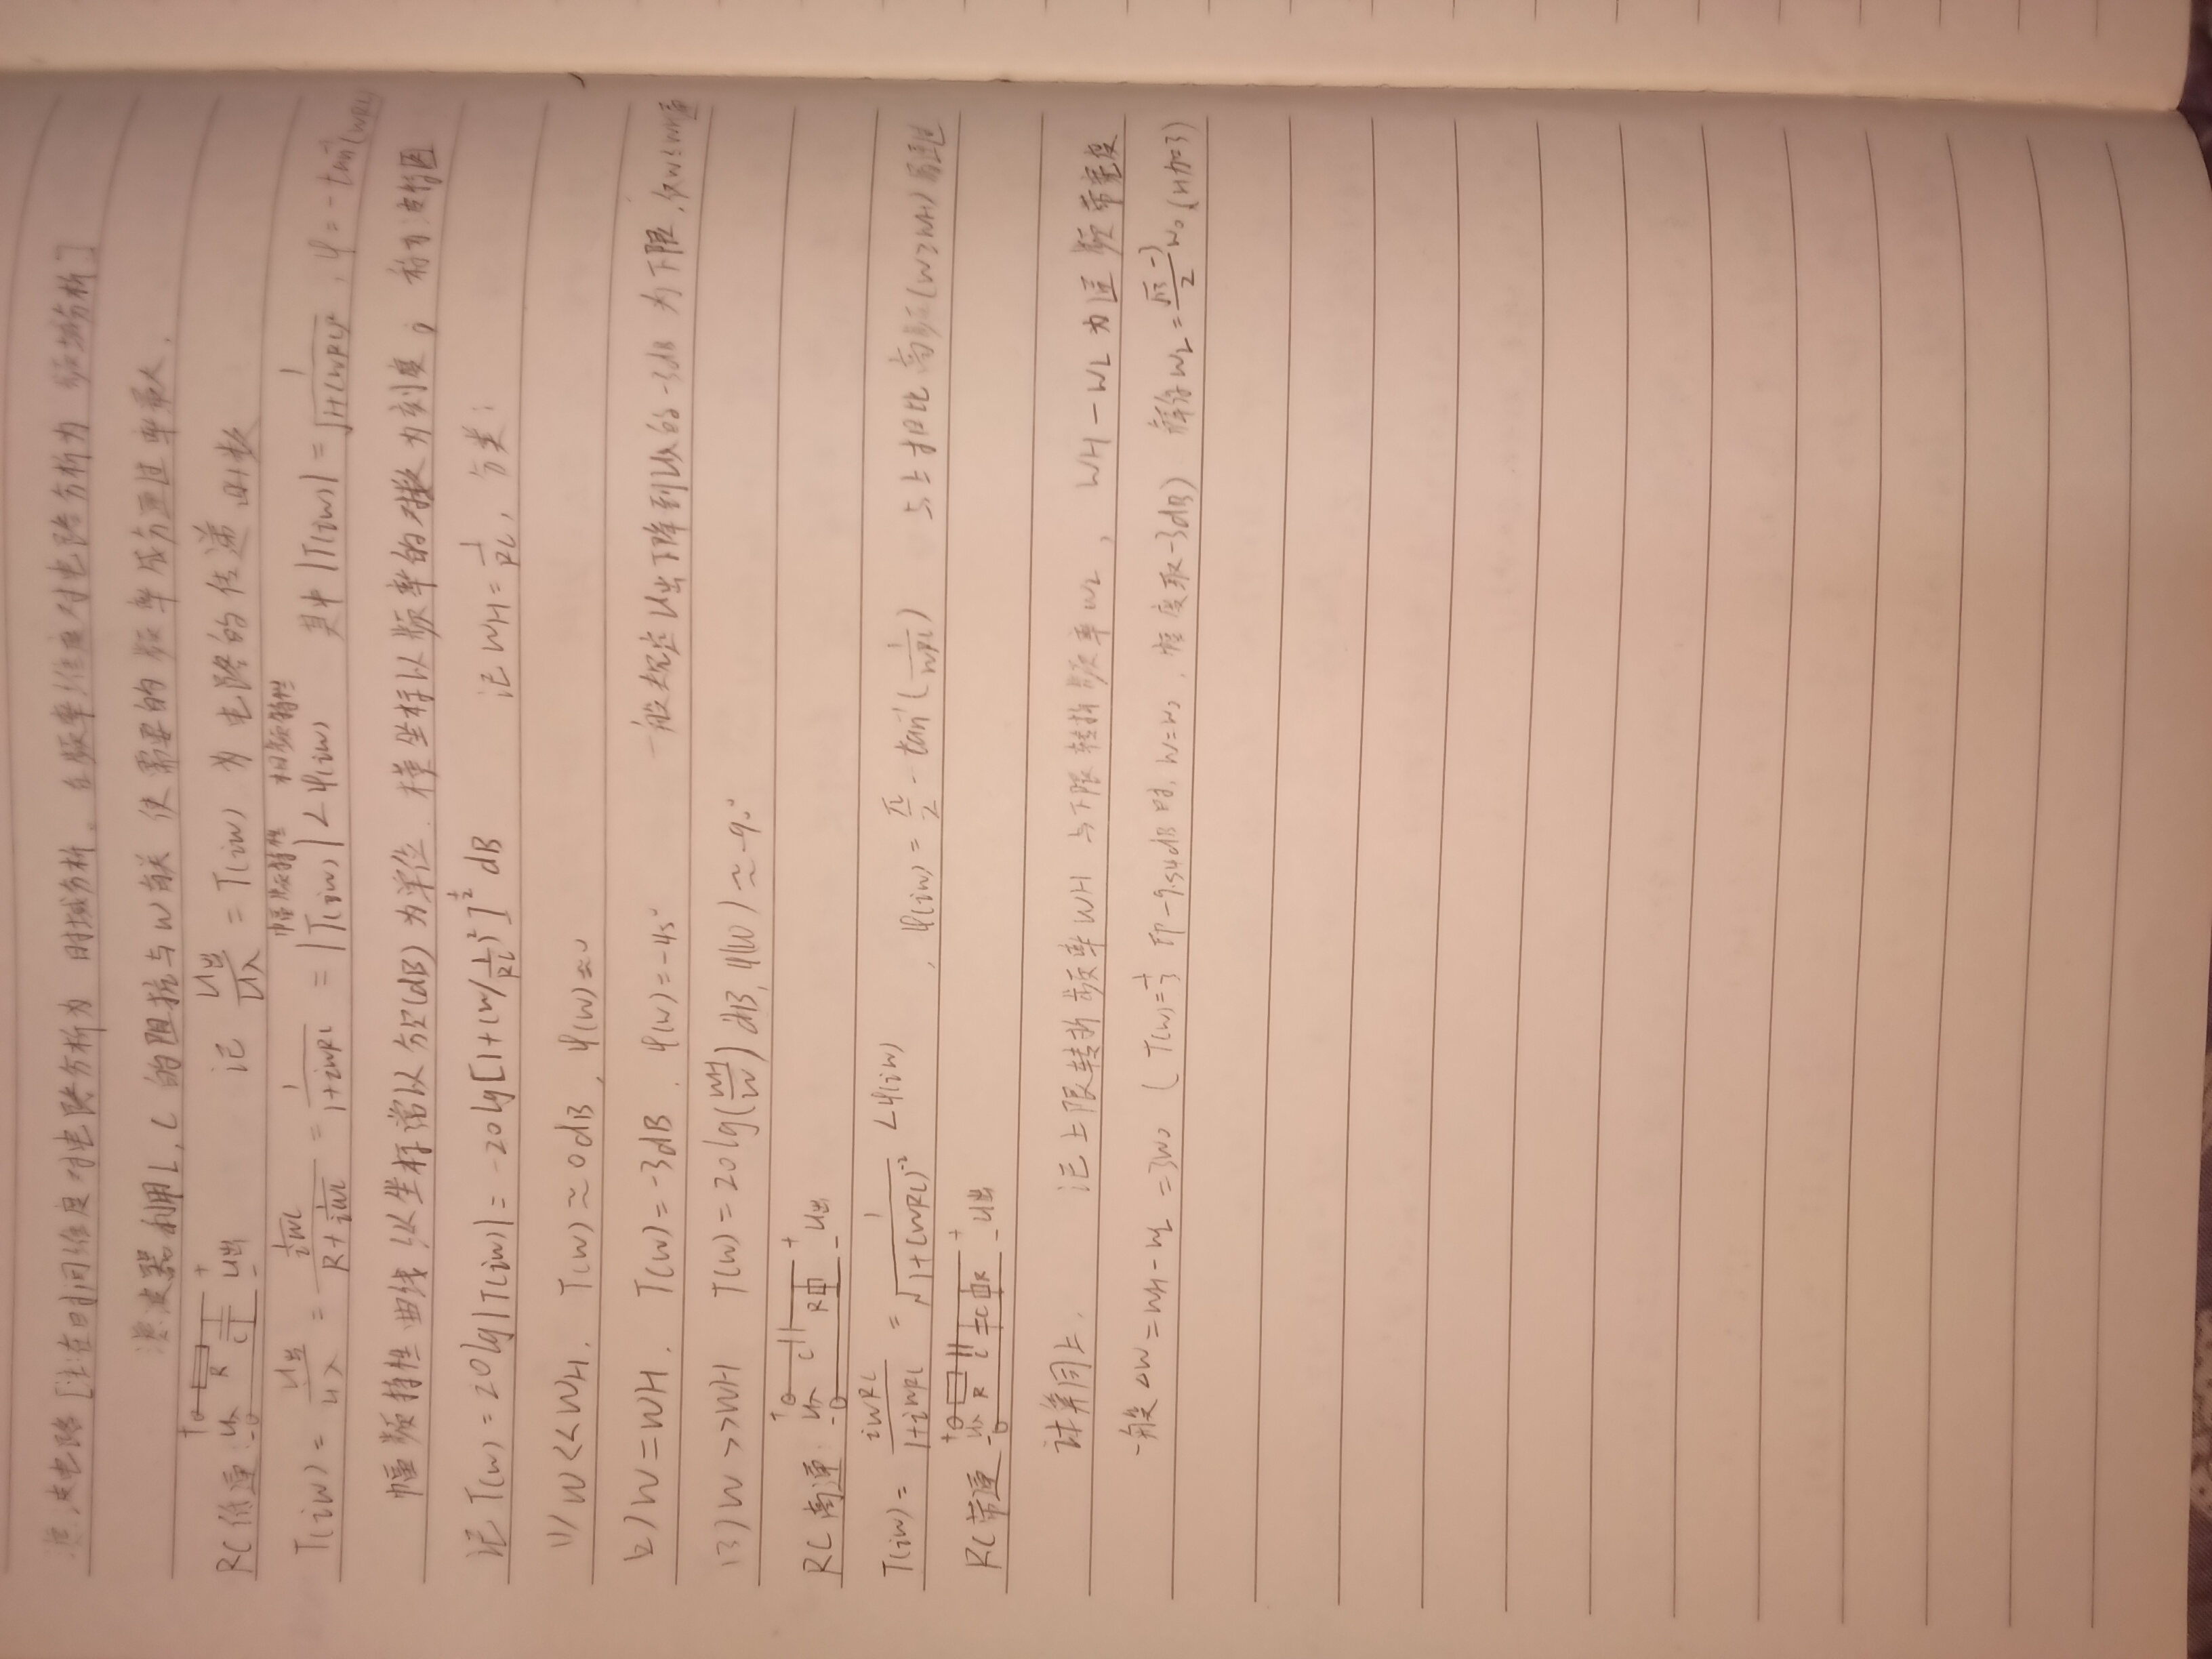 滤波电路 [注在时间维度对电路分析为 时域分析。在频率维度对电路分析为 频域分析]
滤波器利用L,C 的阻抗与w有关 使需要的频率成分通过率最大.
RC低通: U入 R C U出 记 U出/U入 = T(iw) 为电路的传递函数
幅频特性 相频特性
T(iw) = U出/U入 = (1/iwC)/(R+1/iwC) = 1/(1+iwRC) = |T(iw)|∠φ(iw) 其中 |T(iw)| = 1/√(1+(wRC)²), φ = -tan⁻¹(wRC)
幅频特性曲线纵坐标常以分贝(dB)为单位. 横坐标以频率的对数为刻度, 称为波特图
记 T(w) = 20lg|T(iw)| = -20lg[1+(w/(1/RC))²]^(1/2) dB 记 wH = 1/RC, 分类:
(1) w<<wH. T(w)≈0dB, φ(w)≈0
(2) w=wH. T(w)=-3dB. φ(w)=-45° 一般规定U出下降到U入的-3dB 为下限. 仅w≤wH通
(3) w>>wH T(w)=20lg(wH/w) dB, φ(w)≈-90°
RC高通: U入 C R U出
T(iw) = iwRC/(1+iwRC) = 1/√(1+(wRC)⁻²) ∠φ(iw) , φ(iw) = π/2 - tan⁻¹(1/wRC) 与上相比 高频(w≥wH)易通过
RC带通 U入 R C C R U出
计算同上. 记上限转折频率wH 与下限转折频率wL, wH-wL为通频带宽度
一般 △w=wH-wL=3w₀ (T(w)=1/3 即-9.54dB时, w=w₀, 幅度取-3dB) 解得wL=(√13-3)/2 w₀